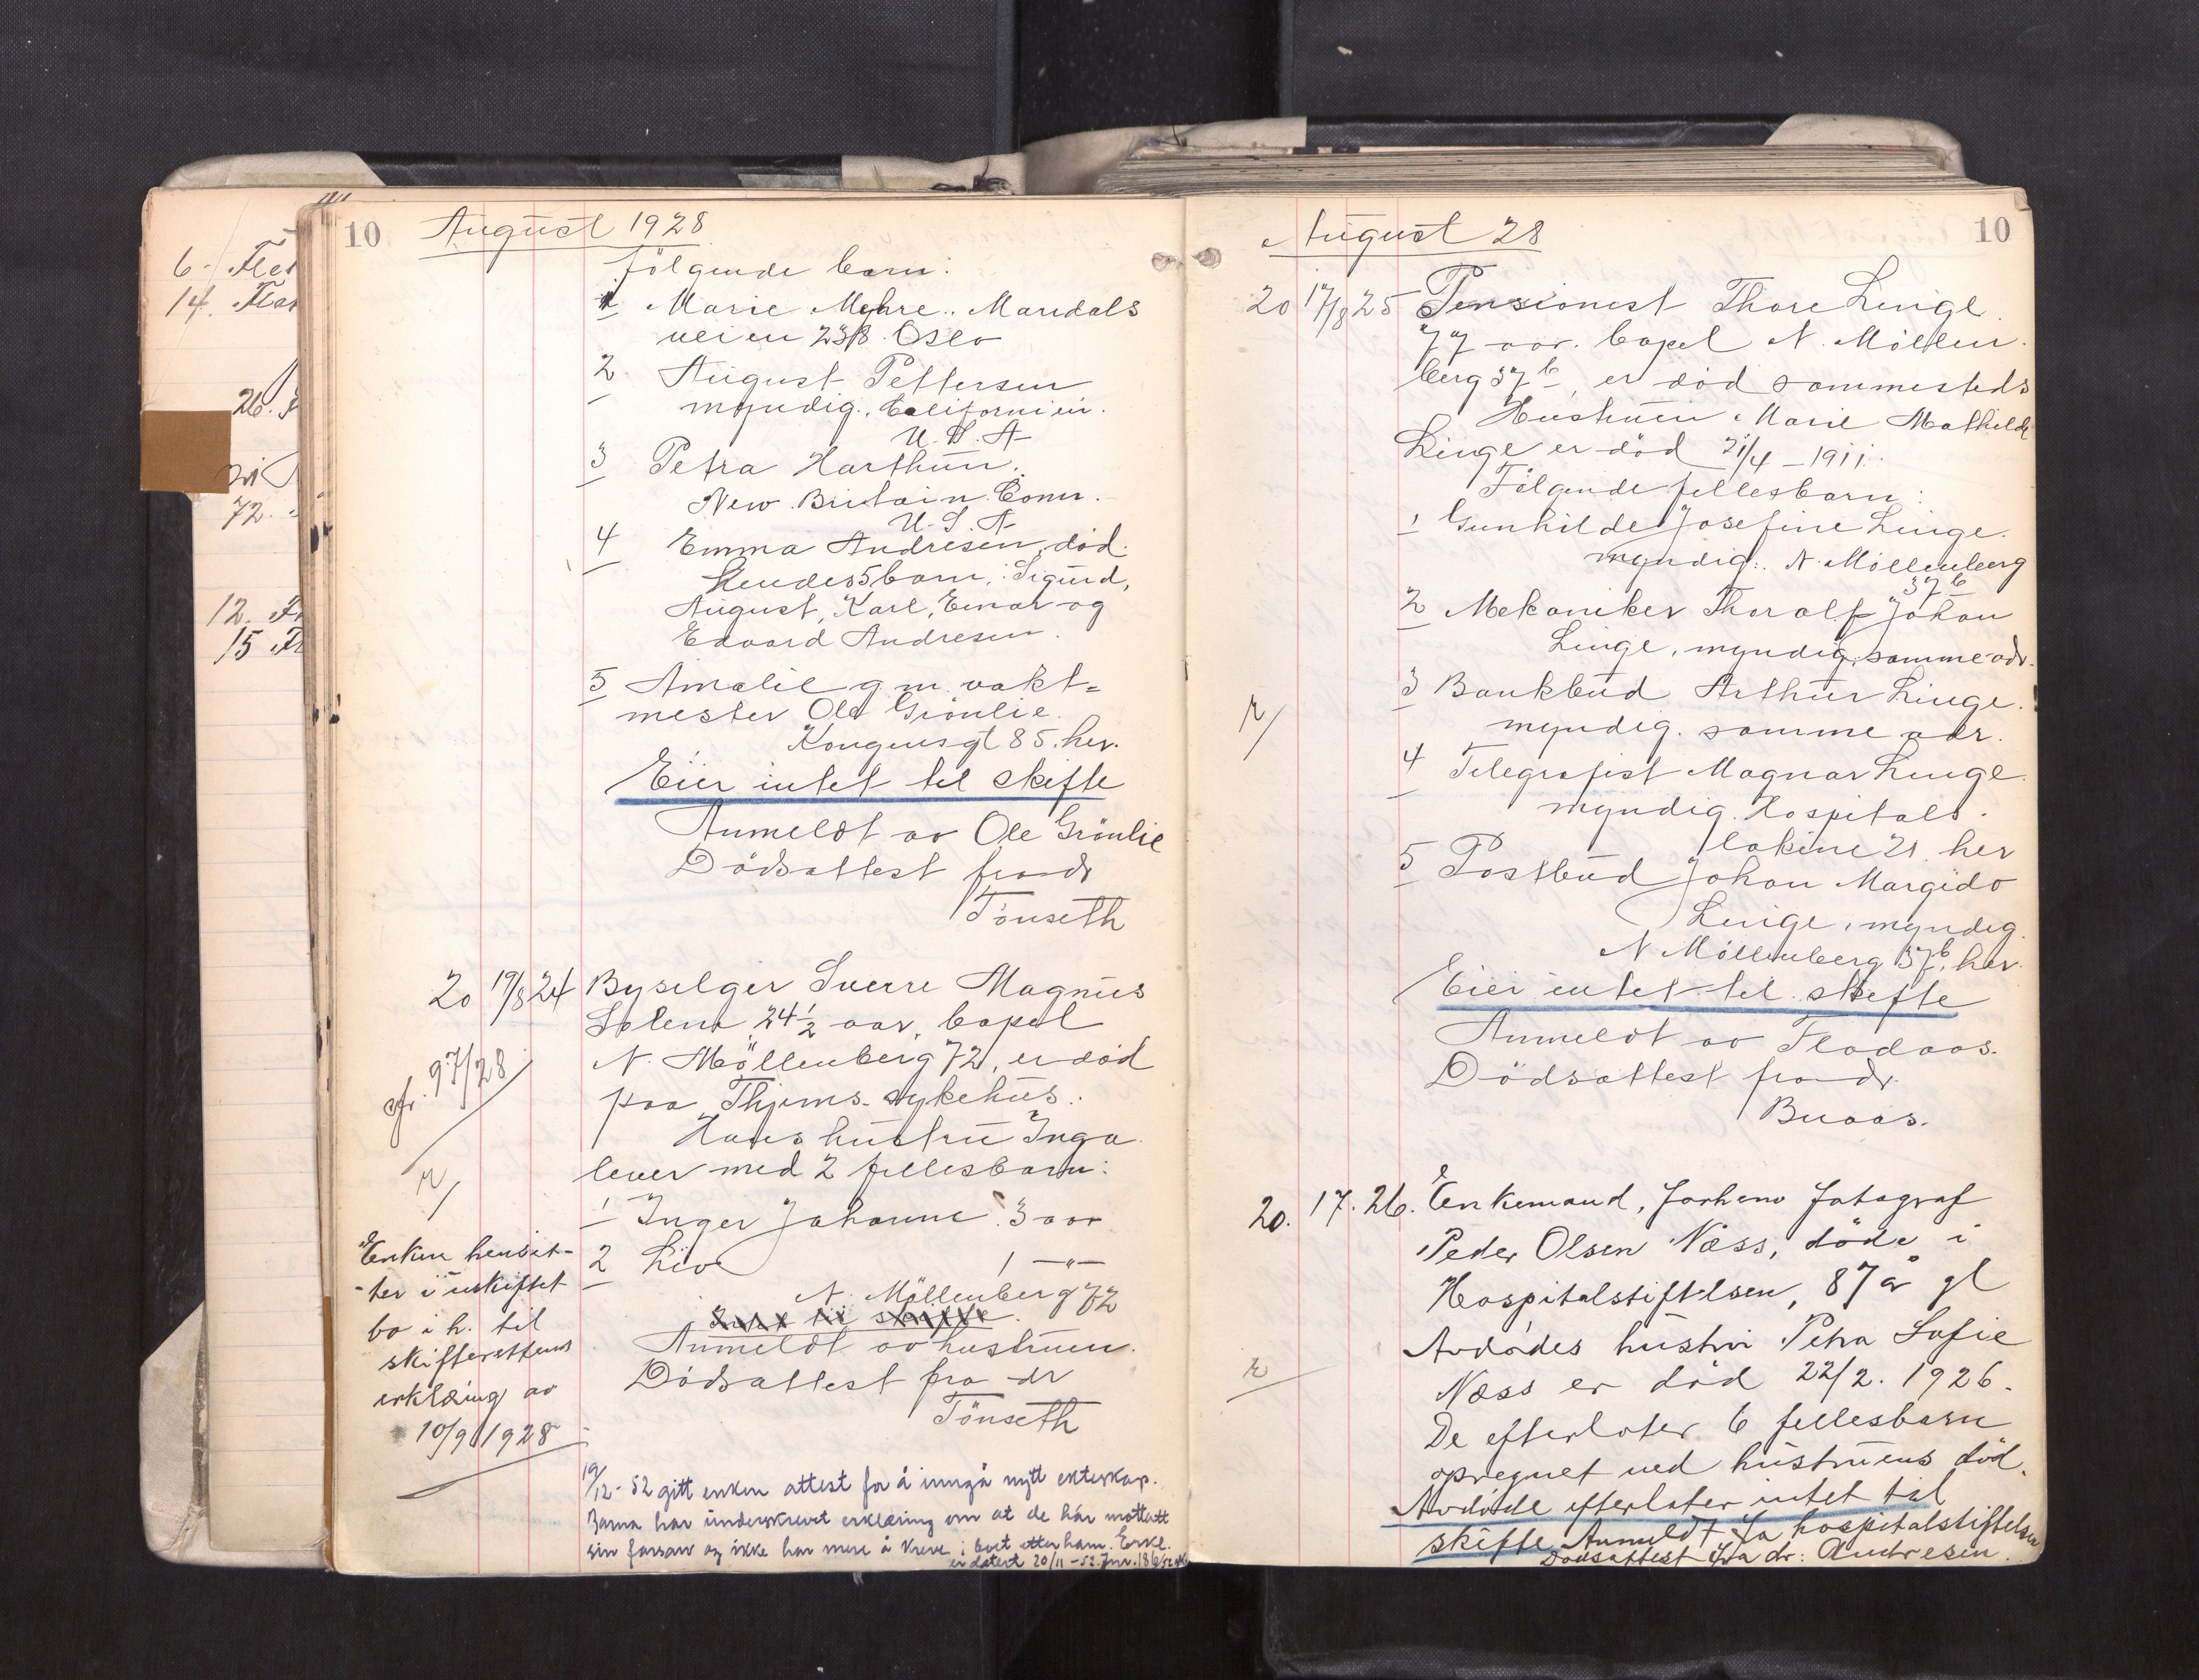 6
14.
26.
72.
12.
15
10 August 1928
følgende barn:
1 Marie Myhre, Maridals
veien 23B. Oslo
2 August Pettersen
myndig, Californien.
U.S.A
3 Petra Harthun.
New Britain Conn.
U.S.A
4 Emma Andresen, død.
Hendes 5 barn: Sigurd,
August, Karl, Einar og
Edvard Andresen.
5 Amalie g.m. vakt-
mester Ole Grönlie.
Kongensgt 85. her.
Eier intet til skifte
Anmeldt av Ole Grönlie
Dödsattest fra dr
Tönseth
20 19/8 24 Byselger Sverre Magnus
Solem, 24 1/2 aar, bopel
N. Möllenberg 72, er död
paa Thjems sykehus.
cfr. 97/28
Hans hustru Inga
lever med 2 fellesbarn:
1 Inger Johanne 3 aar
2 Liv 1 -"-
N. Möllenberg 72
Intet til skifte.
Anmeldt av hustruen.
Dödsattest fra dr
Tönseth
Enken hensit-
-ter i uskiftet
bo i h. til
skifterettens
erklæring av
10/9 1928
19/12-52 gitt enken attest for å inngå nytt ekteskap.
Barna har underskrevet erklæring om at de har mottatt
sin farsarv og ikke har mere å kreve i boet etter ham. Erkl.
er datert 20/11-52. Jnr.
August 28 10
20 17/8 25 Pensionist Thore Linge
77 aar. bopel N. Möllen-
berg 37b, er död sammesteds
Hustruen Marie Mathilde
Linge er död 21/4-1911.
Følgende fellesbarn:
1 Gunhilde Josefine Linge.
myndig. N. Möllenberg
37b
2 Mekaniker Thoralf Johan
Linge, myndig, samme adr.
3 Bankbud Arthur Linge.
myndig. samme adr.
4 Telegrafist Magnar Linge
myndig. Hospitals-
lökkene 21. her
5 Postbud Johan Margido
Linge, myndig.
N Möllenberg 37b, her.
Eier intet til skifte
Anmeldt av Flodaas.
Dödsattest fra dr.
Buaas.
20. 17. 26. Enkemand, forhenv fotograf
Peder Olsen Næss, döde i
Hospitalstiftelsen, 87 år gl
Avdödes hustru Petra Sofie
Næss er död 22/2. 1926.
De efterlater 6 fellesbarn
opregnet ved hustruens död.
Avdöde efterlater intet til
skifte. Anmeldt fra hospitalstiftelsen
Dödsattest fra dr: Andresen.